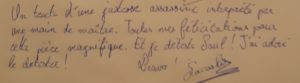 Un conte d'une justesse assassine interprété par
une main de maître. Toutes mes félicitations pour
cette pièce magnifique. Et je déteste Saul ! J'ai adoré
le détester !
Bravo !